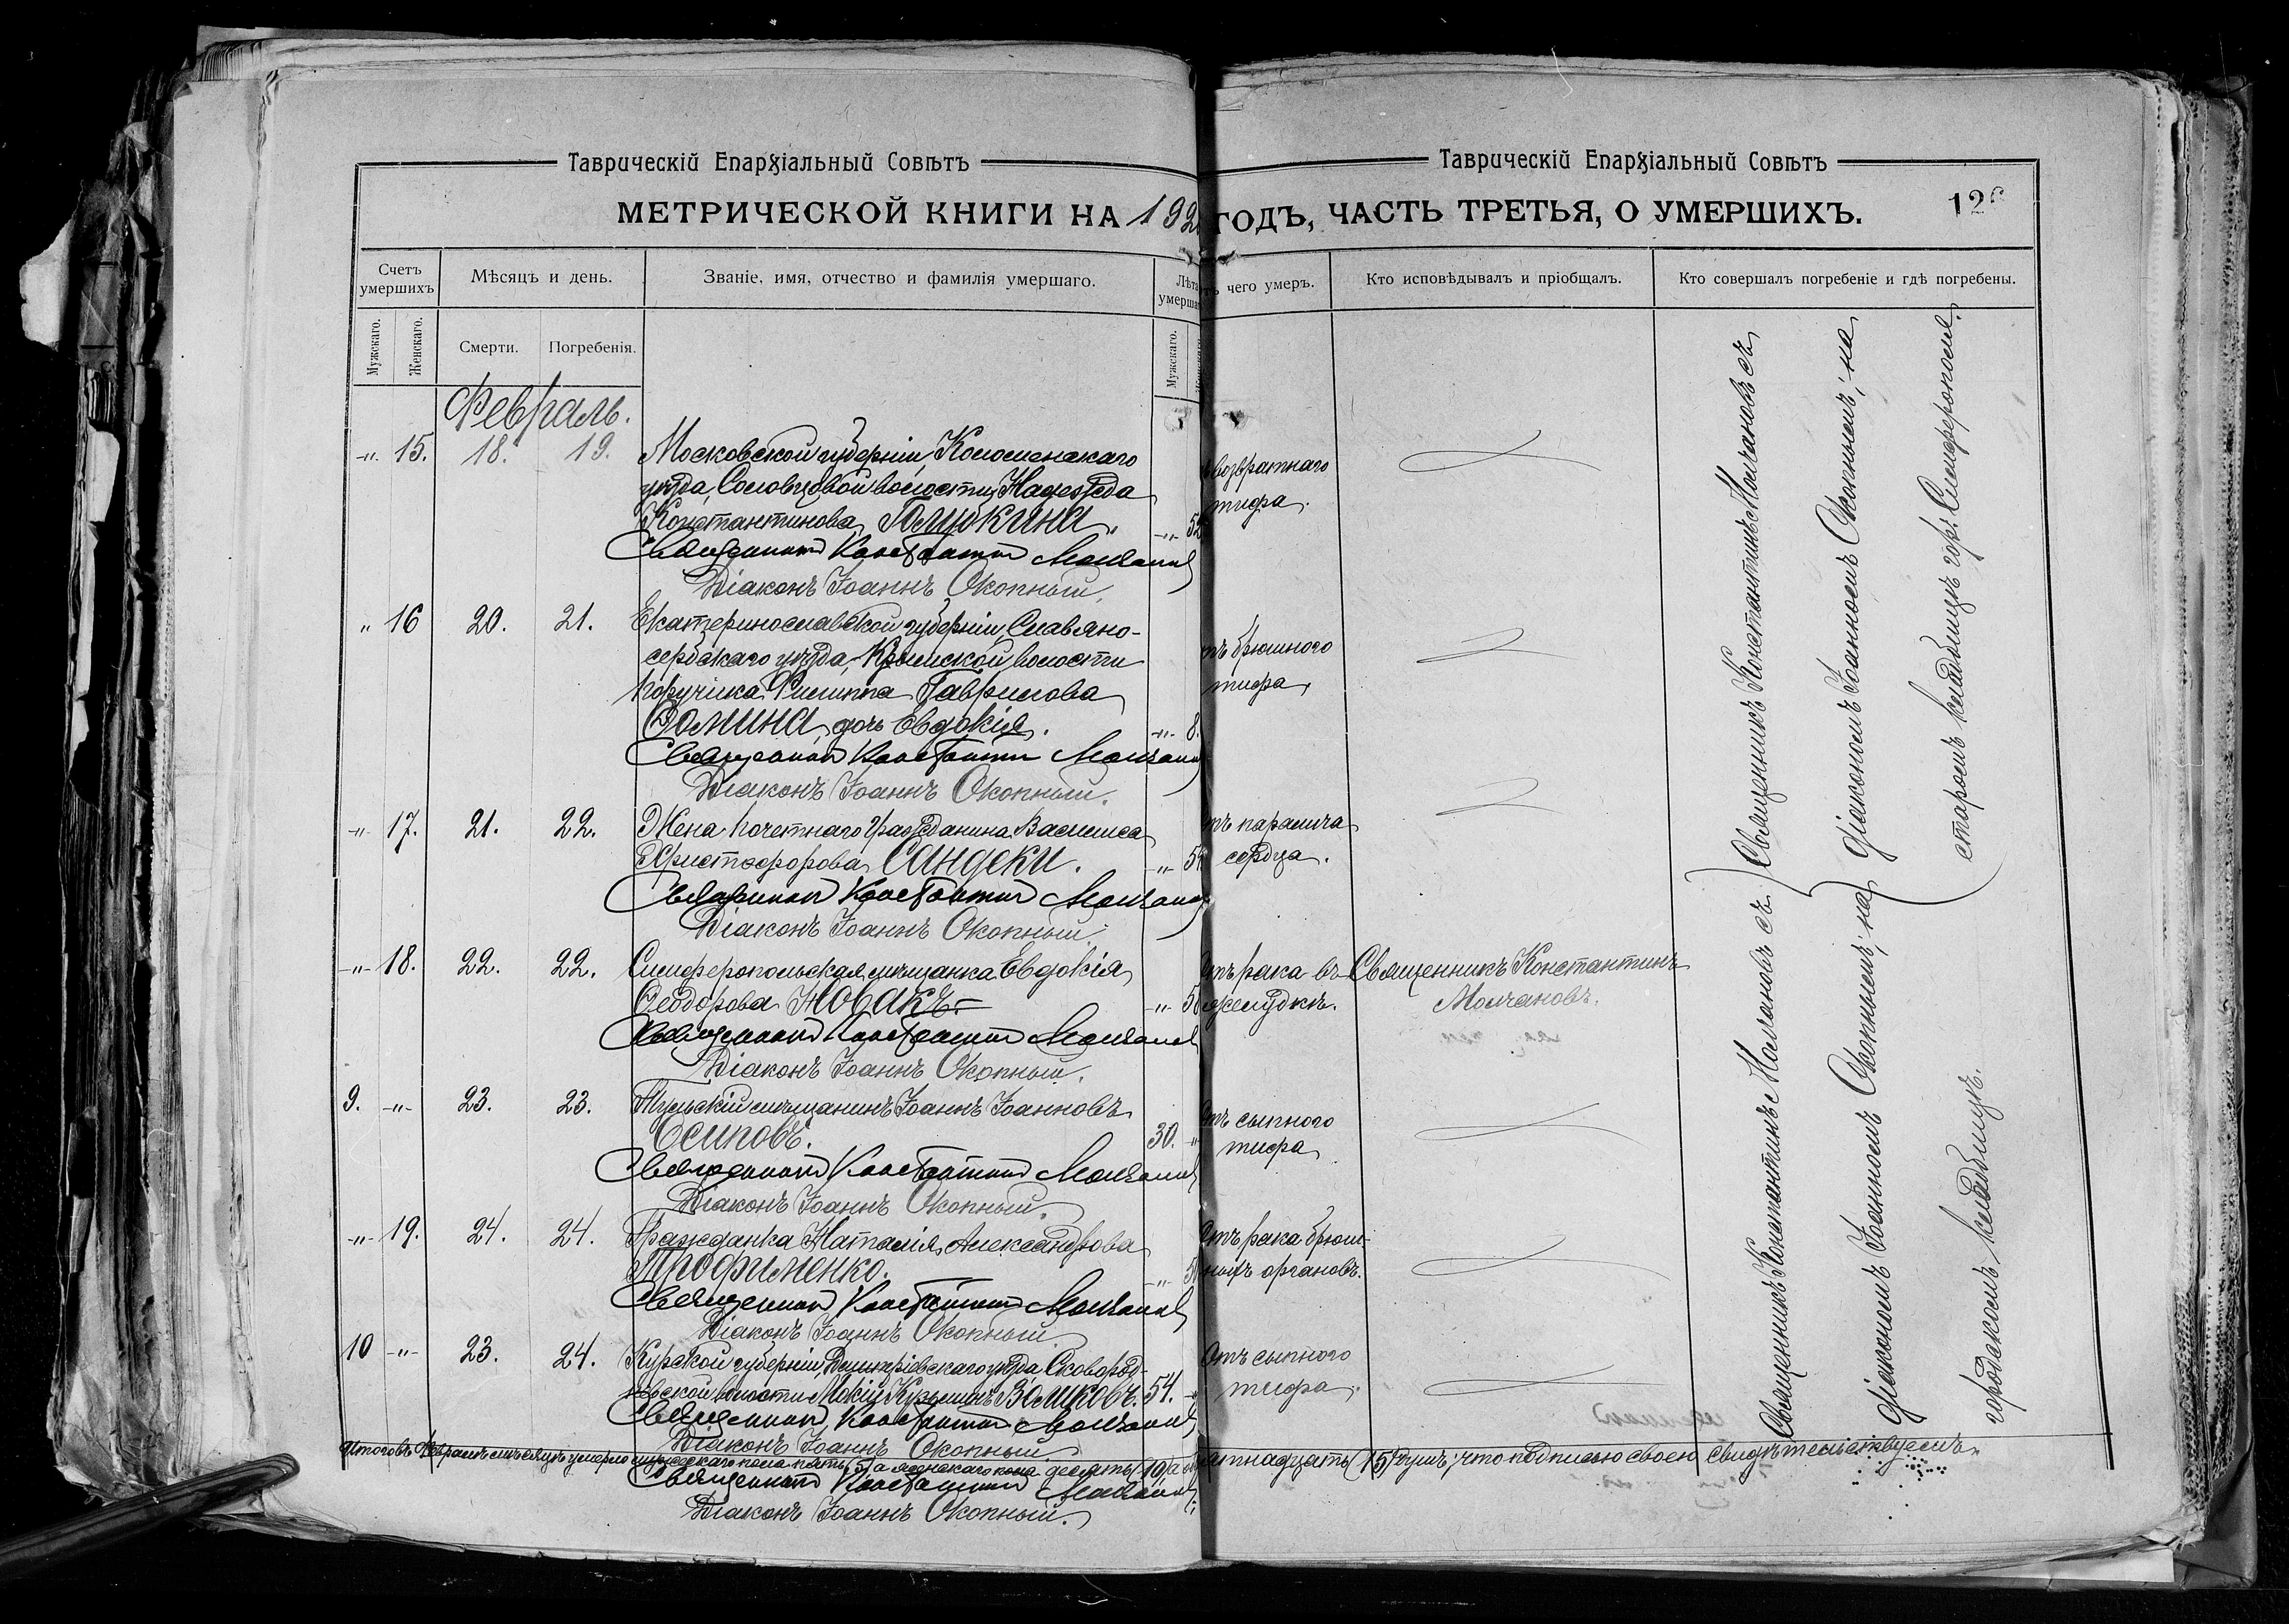 Таврическій Епархіальный Совѣтъ
МЕТРИЧЕСКОЙ КНИГИ НА 192
Счетъ умершихъ
Мѣсяцъ и день.
Званіе, имя, отчество и фамилія умершаго.
Лѣта умерша
Мужскаго.
Женскаго.
Смерти.
Погребенія.
Мужскаго.
Февраль.
-"- 15. 18. 19. Московской губерніи, Коломенскаго
уѣзда, волости, Надежда
Константинова Голубкина. -"- 52
Священникъ Константинъ Молчановъ
Діаконъ Іоаннъ Окопный.
" 16 20. 21. Екатеринославской губерніи, Славяно-
сербскаго уѣзда, Крымской волости
поручика Филиппа Гаврилова
Сомина, дочь Евдокія. -"- 8.
Священникъ Константинъ Молчановъ
Діаконъ Іоаннъ Окопный.
-"- 17. 21. 22. Жена почетнаго гражданина Василиса
Христофорова Сандеки. -"- 5
Священникъ Константинъ Молчановъ
Діаконъ Іоаннъ Окопный.
-"- 18. 22. 22. Симферопольская мѣщанка Евдокія
Ѳеодорова Новакъ. -"- 5
Священникъ Константинъ Молчановъ
Діаконъ Іоаннъ Окопный.
9. -"- 23. 23. Тульскій мѣщанинъ Іоаннъ Іоанновъ
Осиповъ. 30. "
Священникъ Константинъ Молчановъ
Діаконъ Іоаннъ Окопный.
-"- 19. 24. 24. Гражданка Наталія Александрова
Трофименко. -"- 5
Священникъ Константинъ Молчановъ
Діаконъ Іоаннъ Окопный
10 -"- 23. 24. Курской губерніи, Дмитріевскаго уѣзда Сковород-
невской волости Мокій Кузьминъ Воликовъ. 54.
Священникъ Константинъ Молчановъ
Діаконъ Іоаннъ Окопный.
Итого въ Февралѣ мѣсяцѣ умерло мужескаго пола пять (5), а женскаго пола десять (10), а
Священникъ Константинъ Молчановъ
Діаконъ Іоаннъ Окопный.
Таврическій Епархіальный Совѣтъ
ГОДЪ, ЧАСТЬ ТРЕТЬЯ, О УМЕРШИХЪ.
126
чего умеръ.
Кто исповѣдывалъ и пріобщалъ.
Кто совершалъ погребеніе и гдѣ погребены.
возвратнаго
тифа.
тъ брюшного
тифа
тъ паралича
сердца.
Отъ рака въ
желудкѣ.
Священникъ Константинъ
Молчановъ.
Отъ сыпного
тифа
Отъ рака брюш-
ныхъ органовъ.
Отъ сыпного
тифа.
Священникъ Константинъ Молчановъ съ
діакономъ Іоанномъ Окопнымъ, на
старомъ кладбищѣ гор. Симферополя.
Священникъ Константинъ Молчановъ съ
діакономъ Іоанномъ Окопнымъ, на
городскомъ кладбищѣ.
ятнадцать (15) душъ, что подписью своею свидѣтельствуемъ.